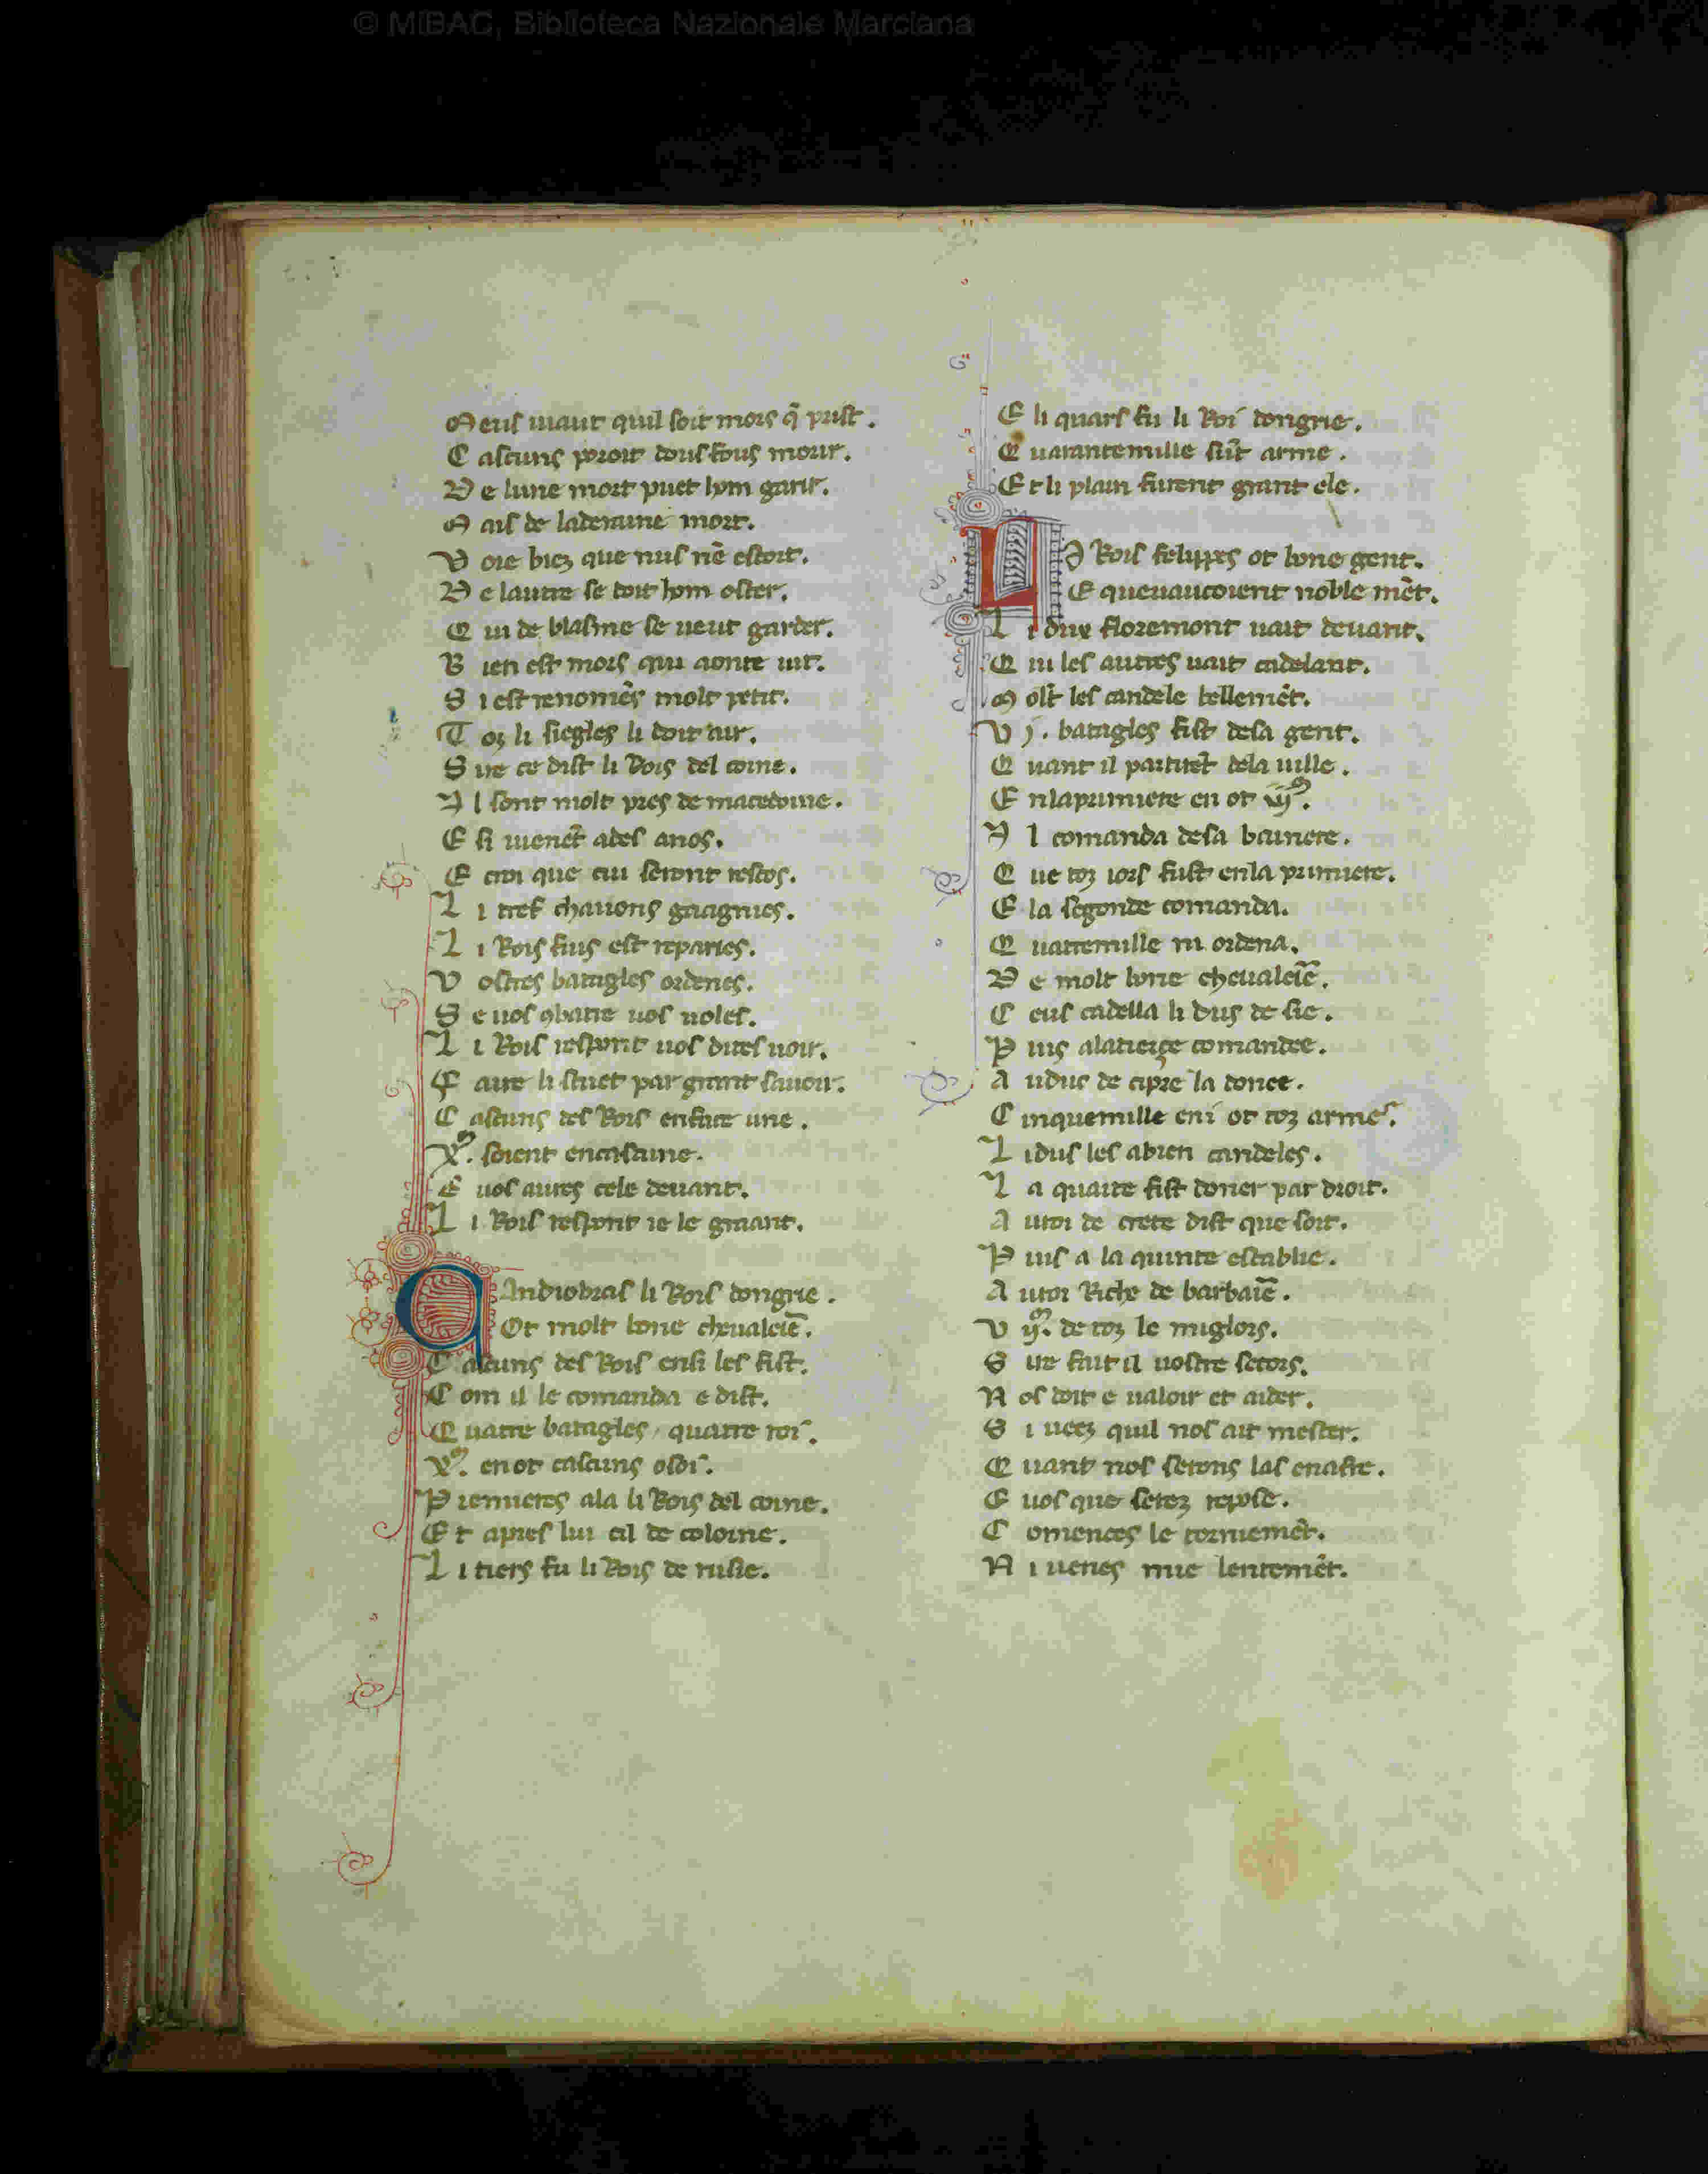 © MiBAC, Biblioteca Nazionale Marciana
M eus uaut quil soit mors q̃ prist.
C ascuns poroit dous fous morir.
D e lune mort puet hom garir.
M ais de laderaine mort.
V oie biez que nus nẽ estort.
D e lautre se doit hom oster.
Q ui de blasme se ueut garder.
B ien est mors qui aonte uit.
S i est renomẽs molt petit.
T oz li siegles li doit air.
S ire ce dist li Rois del coine.
I l sont molt pres de macedoine.
E si uienẽt ades anos.
E croi que cui seront rescos.
L i tref chauons gaagnies.
L i Rois fius est reparies.
V ostres batagles ordenes.
S e uos ꝯbatre uos uoles.
L i Rois respont uos dites uoir.
F aire li stuet par grant sauoir.
C ascuns des Rois enface une.
X.m soient encascune.
E uos aures cele deuant.
L i Rois respont ie le graant.
C Andiobras li Rois dongrie.
Ot molt bone cheualeiẽ.
C ascuns des Rois ensi les fist.
C om il le comanda e dist.
Q uatre batagles quatre roi.
X.m enot cascuns osoi.
P remieres ala li Rois del coine.
E t apres lui cil de coloine.
L i tiers fu li Rois de rusie.
E li quars fu li Roi dongrie.
Q uarantemille sũt arme.
E t li plain furent grant ele.
L I Rois felippes ot bone gent.
E queuaucoient noble mẽt.
L i dux floremont uait deuant.
Q ui les autres uait cadelant.
M olt les candele bellemẽt.
V j. batagles fist desa gent.
Q uant il partirẽt dela uille.
E nlaprimiere en ot iiijm.
I l comanda desa baniere.
Q ue toz iors fust enla primiere.
E la segonde comanda.
Q uatremille ni ordena.
D e molt bone cheualeiẽ.
C eus cadella li dus de sie.
P uis alatierce comandee.
A udus de cipre la donee.
C inquemille eni ot toz armes.
L idus les abien candeles.
L a quarte fist doner par droit.
A uroi de crete dist que soit.
P uis a la quinte establie.
A uroi Riche de barbaiẽ.
V ijm. de toz le miglors.
S ire fait il uostre secors.
N os doit e ualoir et aider.
S i ueez quil nos ait mester.
Q uant nos serons las enastre.
E uos que serez repose.
C omences le torniemẽt.
N i uenes mie lentemẽt.